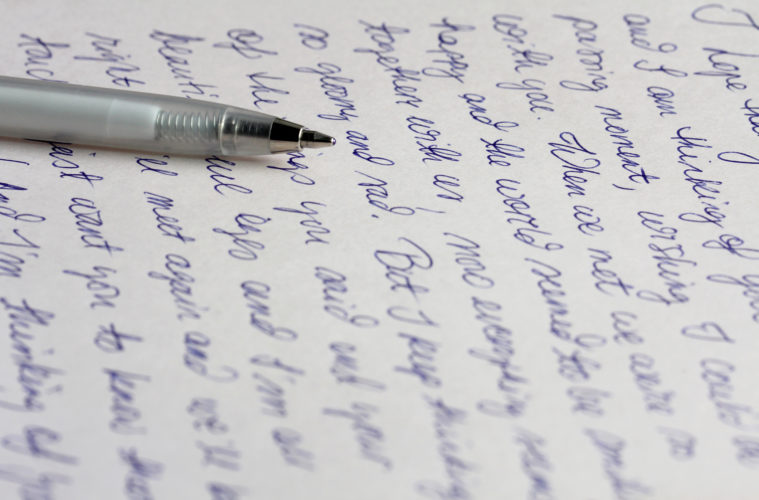 I hope
and I am thinking of you
passing moment, wishing I could be
with you. When we met we were so
happy and the world seemed to be
together with us, now everything seem
so gloomy and sad. But I keep thinking
of the you said and your
beauti eyes and I'm all
right meet again and we'll
want you to know that
And I'm thinking of you